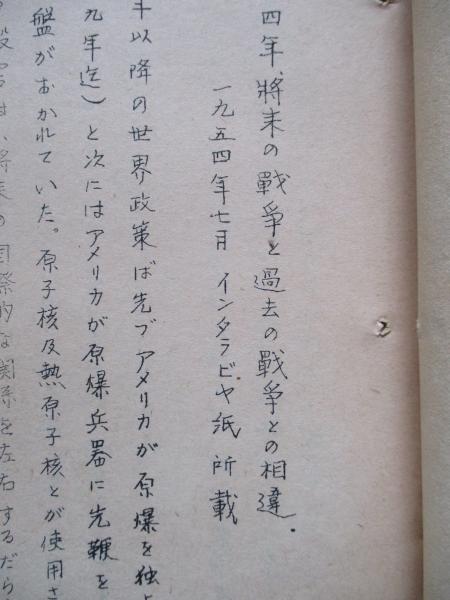 四年、將来の戰爭と過去の戰爭との相違.
一九五四年七月 インタラビヤ紙 所載
年以降の世界政策ば先づアメリカが原爆を独
九年迄)と次にはアメリカが原爆兵器に先鞭を
盤がおかれていた。原子核及熱原子核とが使用さ
は、将来の国際的な関係を左右するだら